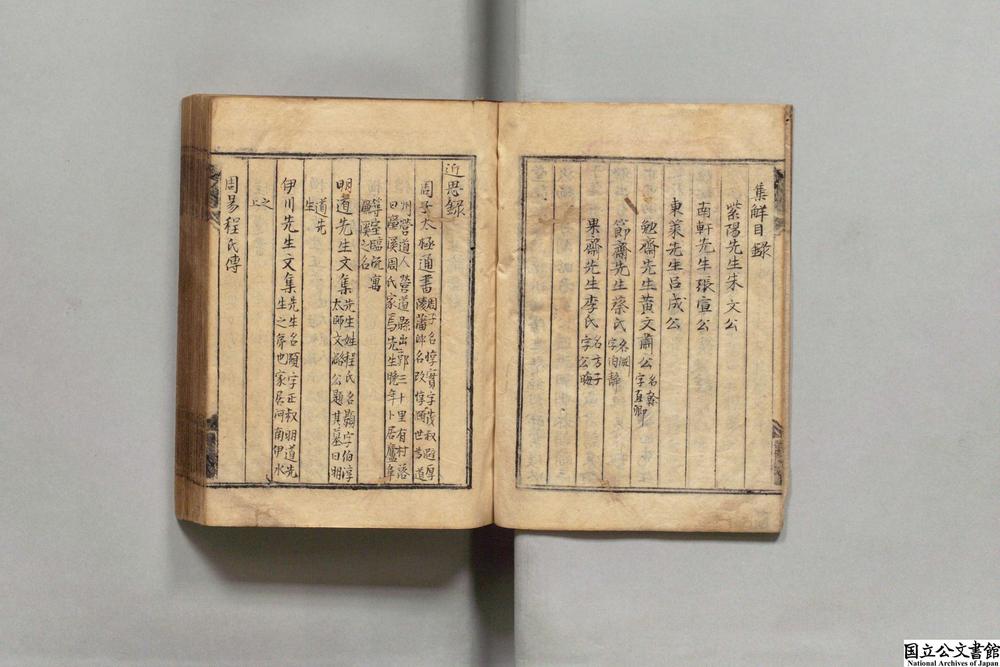 集解目録
紫陽先生朱文公
南軒先生張宣公
東萊先生呂成公
勉齋先生黃文肅公名榦字直卿
節齋先生蔡氏名淵字伯靜
果齋先生李氏名方子字公晦
近思録
周子太極通書周子名惇實字茂叔避厚
陵藩邸名改惇頤世爲道
州營道人營道縣出郭三十里有村落
曰濂溪周氏家焉先生晩年卜居廬阜
築室臨流寓
濂溪之名
明道先生文集先生姓程氏名顥字伯淳
太師文潞公題其墓曰明
道先
生
伊川先生文集先生名頤字正叔明道先
生之弟也家居河南伊水
之
上
周易程氏傳
国立公文書館
National Archives of Japan